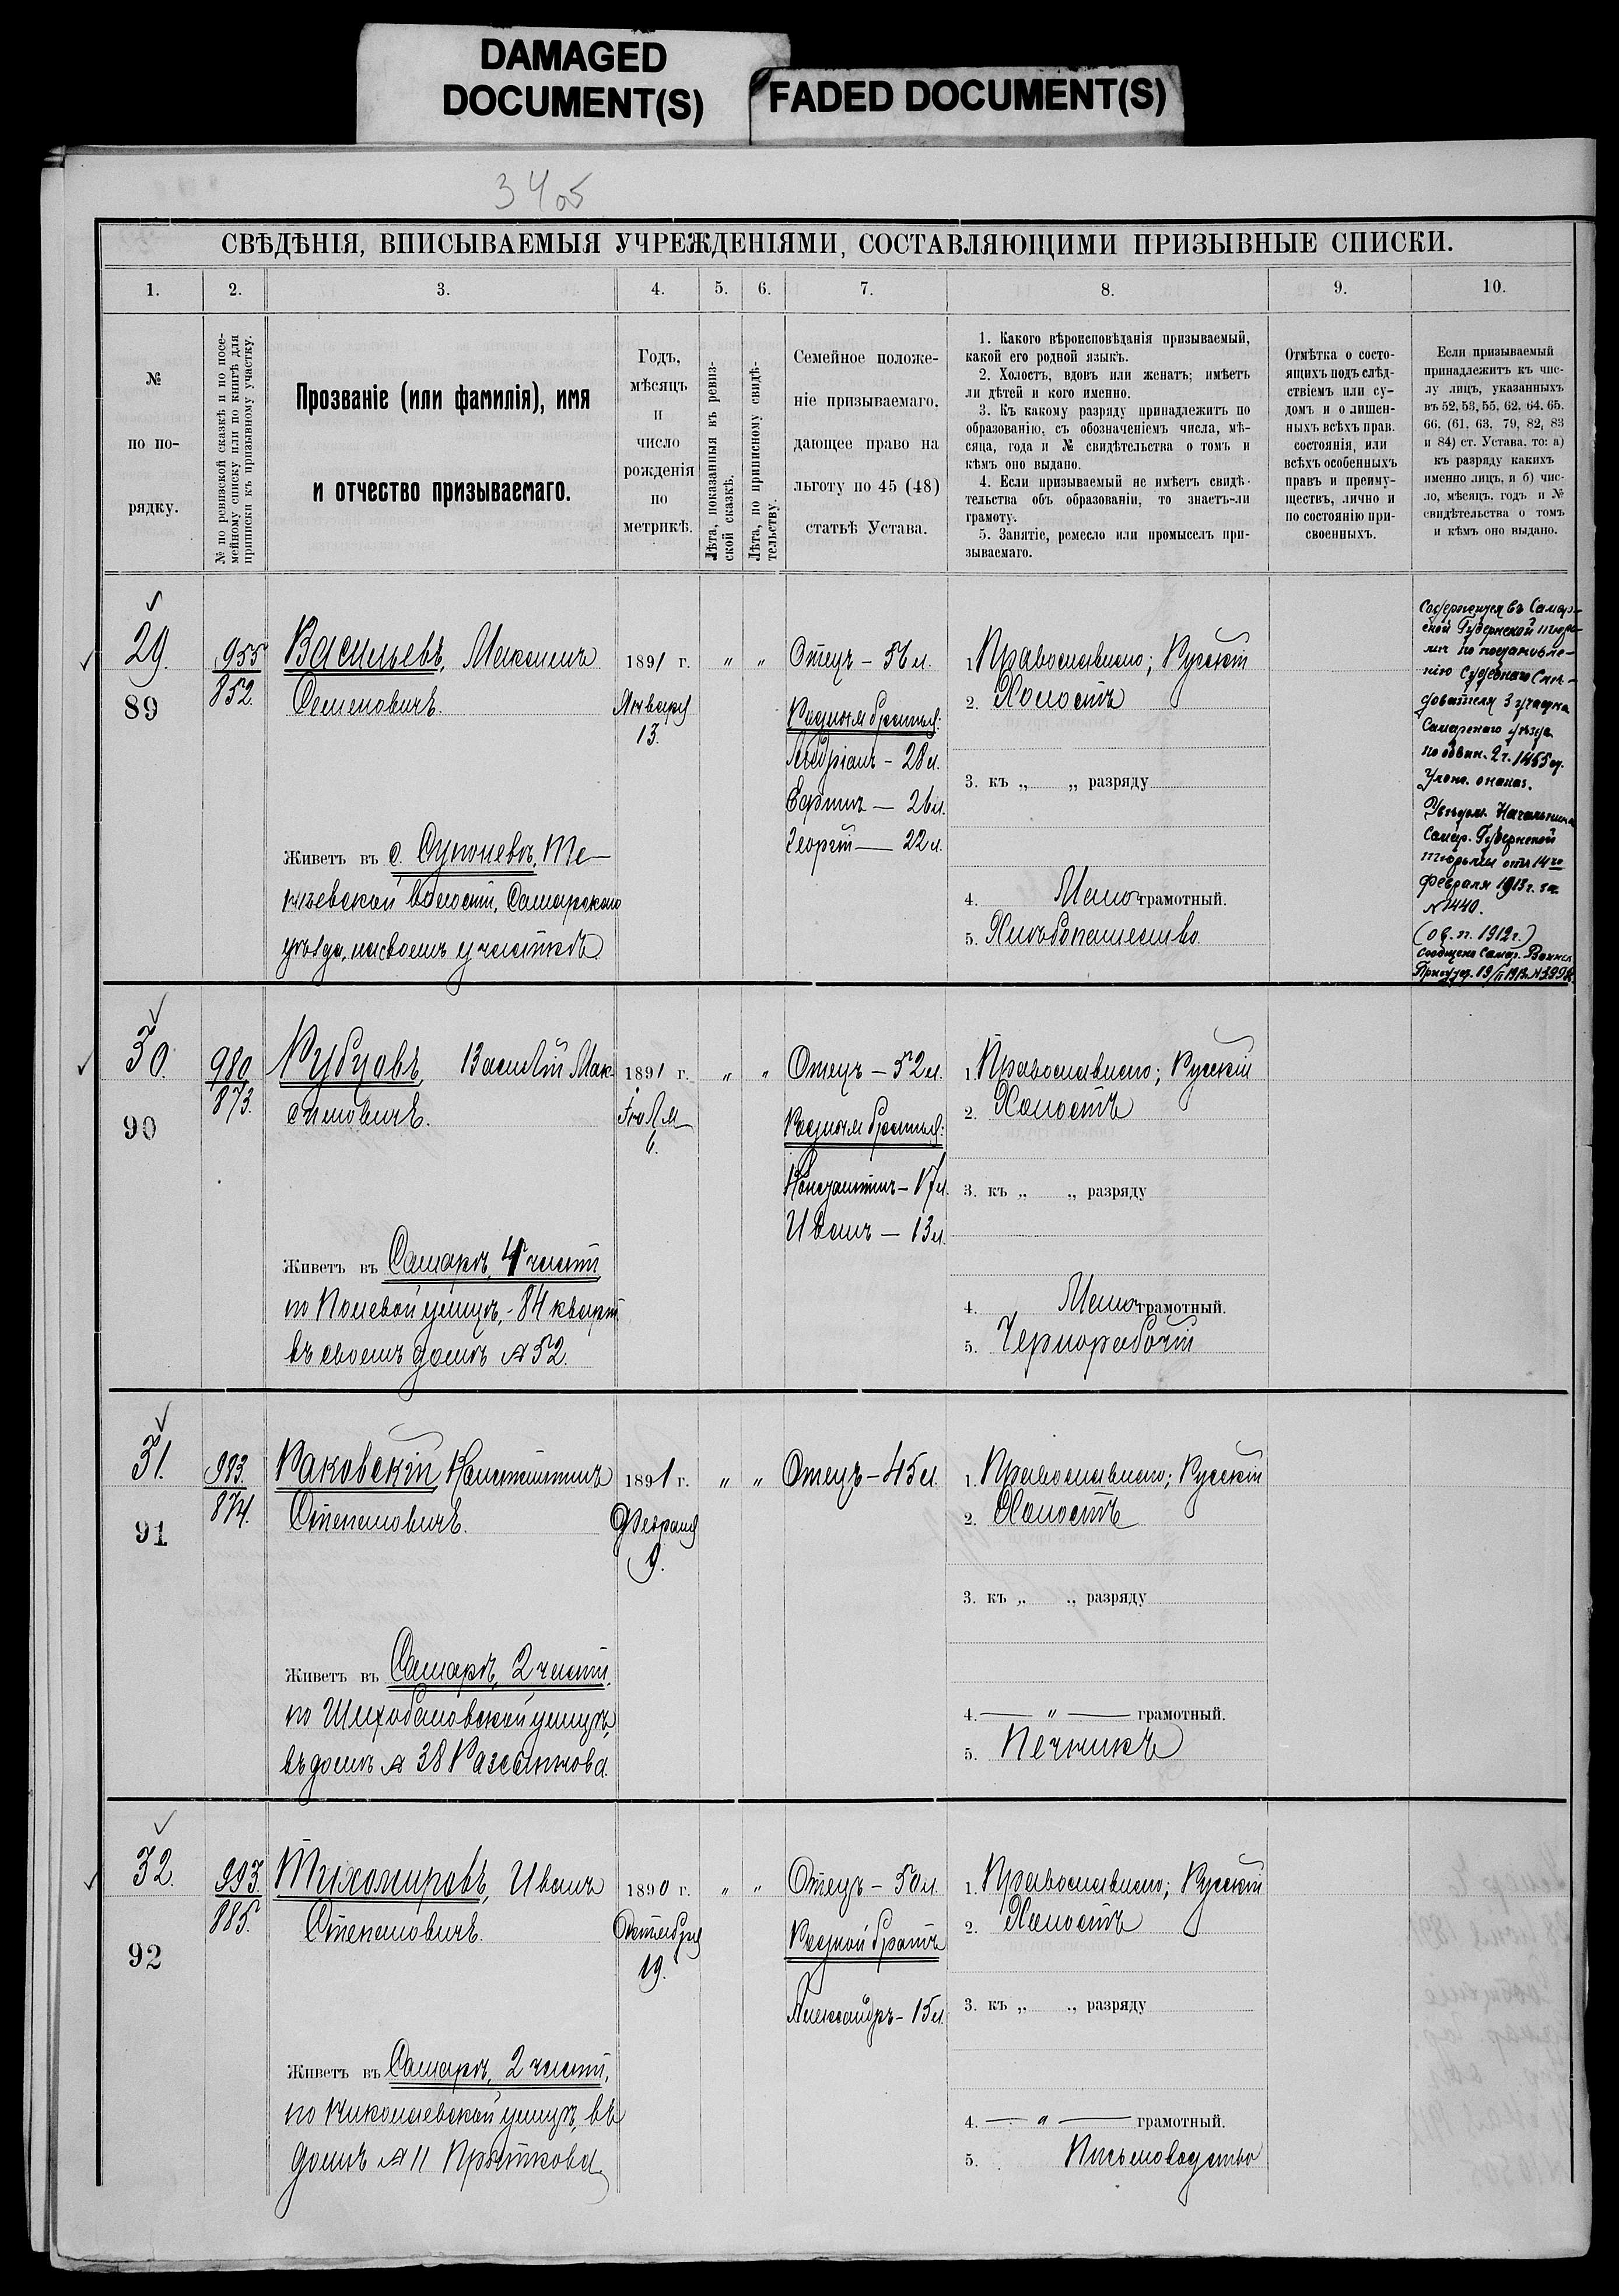 DAMAGED
DOCUMENT(S)
FADED DOCUMENT(S)
34об
СВѢДѢНІЯ, ВПИСЫВАЕМЫЯ УЧРЕЖДЕНІЯМИ, СОСТАВЛЯЮЩИМИ ПРИЗЫВНЫЕ СПИСКИ.
1. 2. 3. 4. 5. 6. 7. 8. 9. 10.
№
по по-
рядку.
№ по ревизской сказкѣ и по посе-
мейному списку или по книгѣ для
приписки къ призывному участку.
Прозваніе (или фамилія), имя
и отчество призываемаго.
Годъ,
мѣсяцъ
и
число
рожденія
по
метрикѣ.
Лѣта, показанныя въ ревиз-
ской сказкѣ.
Лѣта, по приписному свидѣ-
тельству.
Семейное положе-
ніе призываемаго,
дающее право на
льготу по 45 (48)
статьѣ Устава.
1. Какого вѣроисповѣданія призываемый,
какой его родной языкъ.
2. Холостъ, вдовъ или женатъ; имѣетъ
ли дѣтей и кого именно.
3. Къ какому разряду принадлежитъ по
образованію, съ обозначеніемъ числа, мѣ-
сяца, года и № свидѣтельства о томъ и
кѣмъ оно выдано.
4. Если призываемый не имѣетъ свидѣ-
тельства объ образованіи, то знаетъ-ли
грамоту.
5. Занятіе, ремесло или промыселъ при-
зываемаго.
Отмѣтка о состо-
ящихъ подъ слѣд-
ствіемъ или су-
домъ и о лишен-
ныхъ всѣхъ прав.
состоянія, или
всѣхъ особенныхъ
правъ и преиму-
ществъ, лично и
по состоянію при-
своенныхъ.
Если призываемый
принадлежитъ къ чис-
лу лицъ, указанныхъ
въ 52, 53, 55, 62, 64, 65.
66, (61, 63, 79, 82, 83
и 84) ст. Устава, то: а)
къ разряду какихъ
именно лицъ, и б) чис-
ло, мѣсяцъ, годъ и №
свидѣтельства о томъ
и кѣмъ оно выдано.
29.
89
955
852.
Васильевъ, Максимъ
Семеновичъ.
Живетъ въ с. Супоневѣ, Те-
нѣевской волости, Самарскаго
уѣзда, на своемъ участкѣ.
1891 г.
Января
13.
" "
Отецъ - 56 л.
Родные братья:
- 28 л.
Ефимъ - 26 л.
Георгій - 22 л.
1. Православнаго; Русскій
2. Холостъ
3. къ „ „ разряду
4. Малограмотный.
5. Хлѣбопашество
Содержится въ Самар-
ской Губернской тюрь-
мѣ по постановле-
нію Судебнаго Слѣ-
дователя 3 участка
Самарскаго уѣзда
по обвин. 2 ч. 1455 ст.
Улож. о наказ.
Увѣдом. Начальника
Самар. Губернской
тюрьмы отъ 14го
февраля 1913 г. за
№ 1440.
(оз. п. 1912 г.)
сообщено Самар. Воинск.
30.
90
980
873.
Рубцовъ, Василій Мак-
симовичъ.
Живетъ въ Самарѣ, 4 части
по Полевой улицѣ, - 84 кварт.
въ своемъ домѣ № 52.
1891 г.
Іюля
6.
" "
Отецъ - 52 л.
Родные братья:
Константинъ - 17 л.
Иванъ - 13 л.
1. Православнаго; Русскій
2. Холостъ
3. къ „ „ разряду
4. Малограмотный.
5. Чернорабочій
31.
91
983.
874.
Раковскій, Константинъ
Степановичъ.
Живетъ въ Самарѣ, 2 части,
по Шихобаловской улицѣ,
въ домѣ № 38
1891 г.
Февраля
9.
" "
Отецъ - 45 л.
1. Православнаго; Русскій
2. Холостъ
3. къ „ „ разряду
4. — " — грамотный.
5. Печникъ
32.
92
993
885.
Тихомировъ, Иванъ
Степановичъ.
Живетъ въ Самарѣ, 2 части,
по Николаевской улицѣ, въ
домѣ № 11
1890 г.
Октября
19.
" "
Отецъ - 50 л.
Родной братъ
Александръ - 15 л.
1. Православнаго; Русскій
2. Холостъ
3. къ „ „ разряду
4. — " — грамотный.
5. Письмоводство